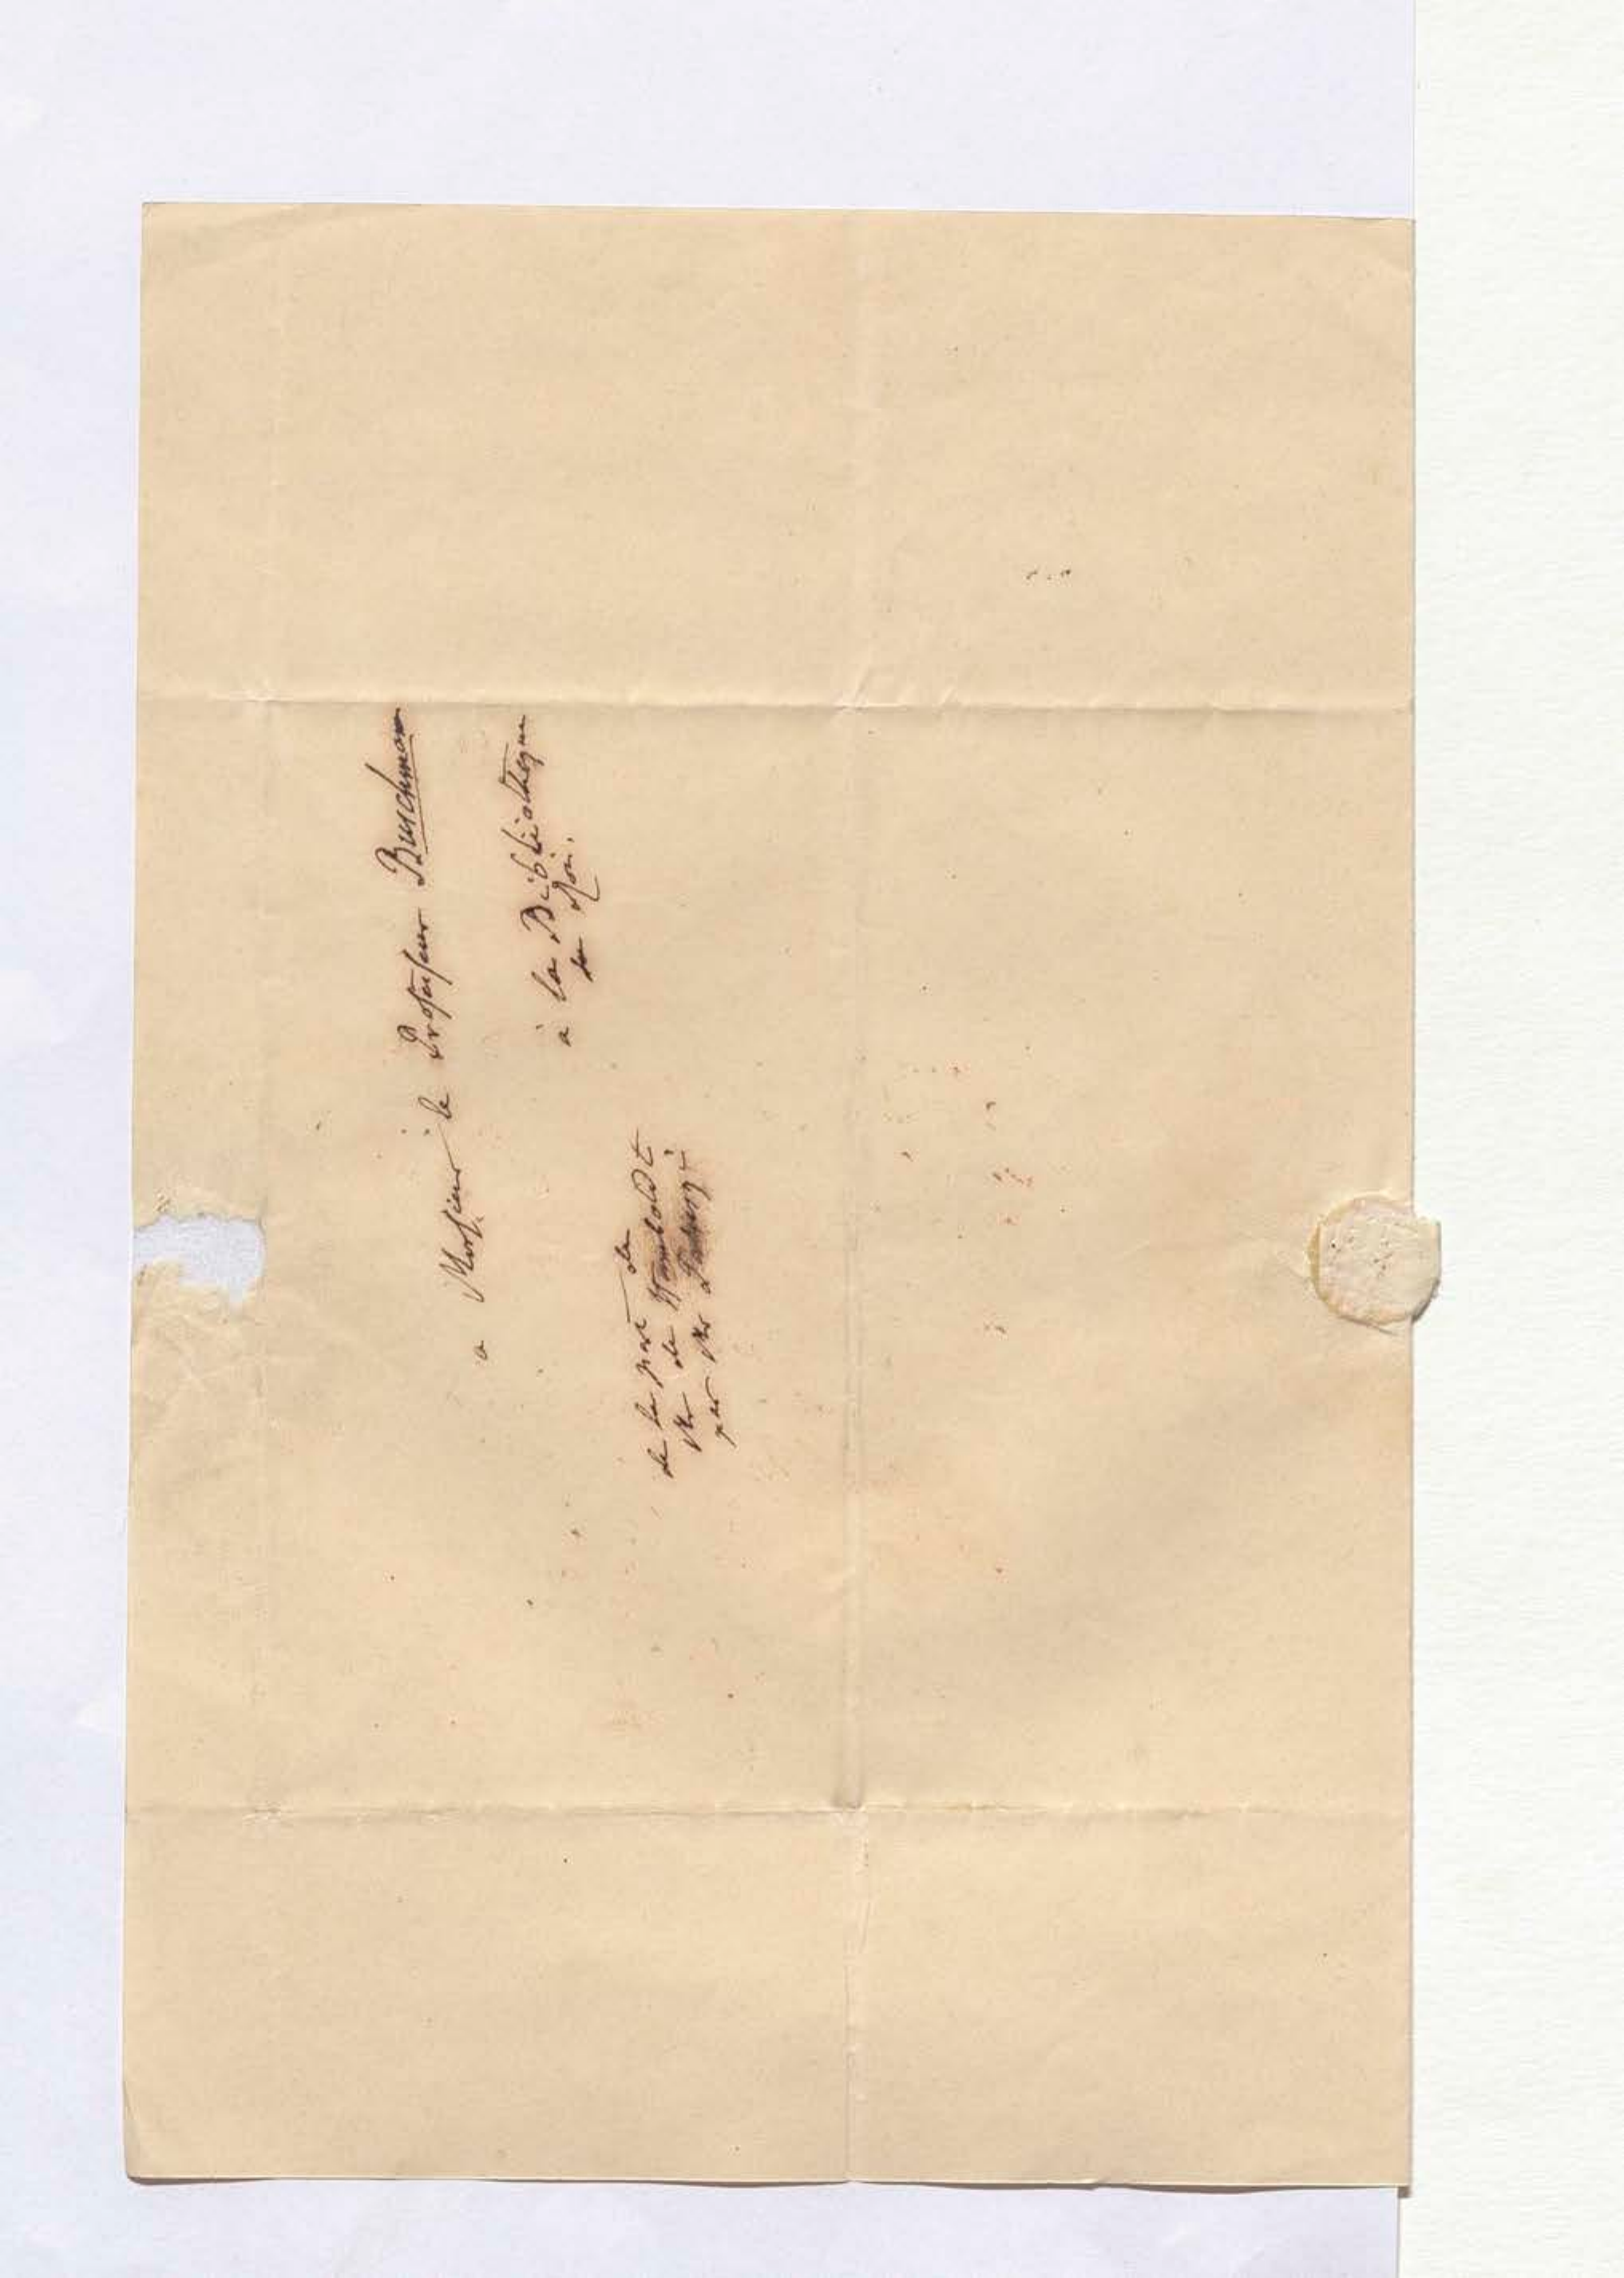 a Monsieur le Professeur Buschmann
à la Bibliotheque
du Roi.
de la part de
Mr de Humboldt
par Mr